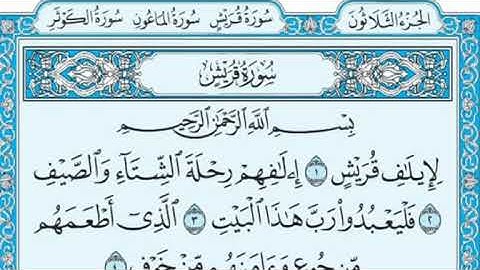 الجزء الثلاثون سورة قريش سورة الماعون سورة الكوثر
سورة قريش
بِسْمِ ٱللَّهِ ٱلرَّحْمَٰنِ ٱلرَّحِيمِ
لِإِيلَٰفِ قُرَيْشٍ ١ إِۦلَٰفِهِمْ رِحْلَةَ ٱلشِّتَآءِ وَٱلصَّيْفِ
٢ فَلْيَعْبُدُوا۟ رَبَّ هَٰذَا ٱلْبَيْتِ ٣ ٱلَّذِىٓ أَطْعَمَهُم
مِّن جُوعٍ وَءَامَنَهُم مِّنْ خَوْفٍۭ ٤